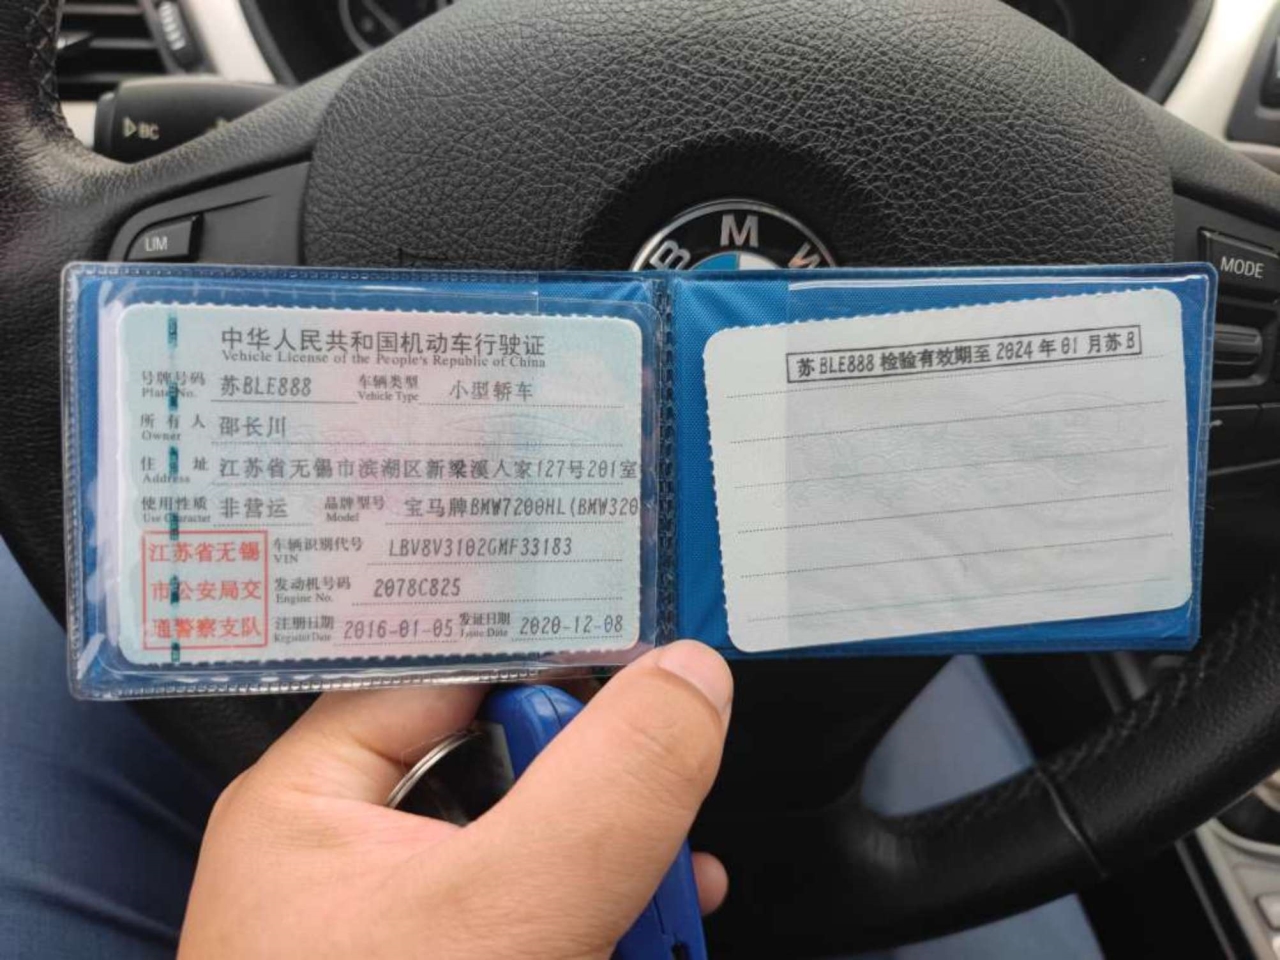 BC
LIM
BMW
MODE
中华人民共和国机动车行驶证
Vehicle License of the People's Republic of China
号牌号码 苏BLE888 车辆类型 小型轿车
Plate No. Vehicle Type
所有人 邵长川
Owner
住址 江苏省无锡市滨湖区新梁溪人家127号201室
Address
使用性质 非营运 品牌型号 宝马牌BMW7200HL(BMW320
Use Character Model
江苏省无锡
市公安局交
通警察支队
车辆识别代号 LBV8V3102GMF33183
VIN
发动机号码 2078C825
Engine No.
注册日期 2016-01-05 发证日期 2020-12-08
Register Date Issue Date
苏BLE888 检验有效期至 2024 年 01 月苏 B